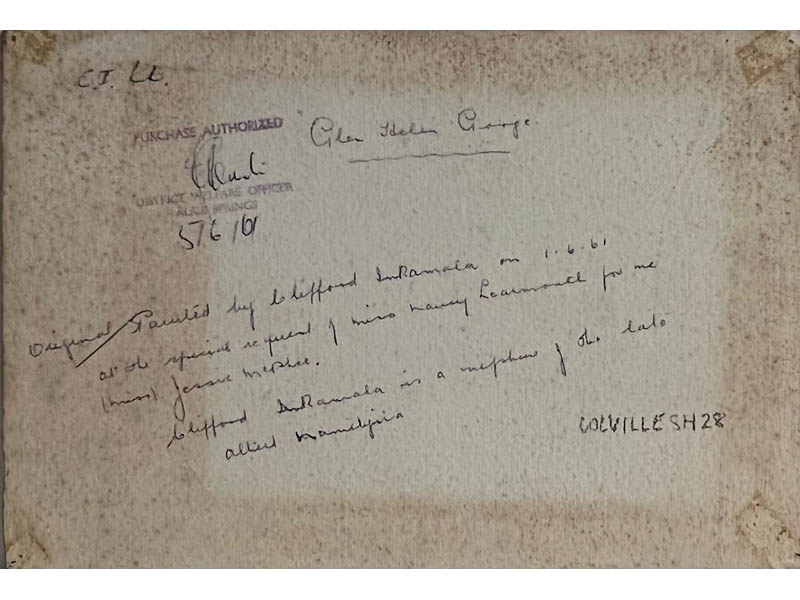 C.I. LL.
PURCHASE AUTHORIZED
" Glen Helen Gorge.
DISTRICT WELFARE OFFICER
ALICE SPRINGS
5/6/61
Original Painted by Clifford Inkamala on 1.6.61
at the special request of miss Nancy Learmouth for me
(miss) Jessie McPhee.
Clifford Inkamala is a nephew of the late
Albert Namitjira
COLVILLE SH28